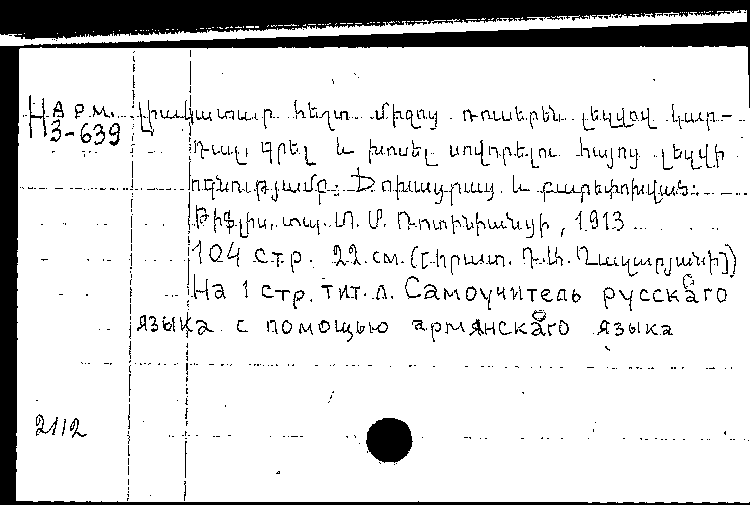 Н АРМ. Լիակատար հեշտ միջոց ռուսերեն լեզվով կար-
3-639 դալ, գրել և խոսել սովորելու հայոց լեզվի
օգնությամբ: Ծ. ոխապրապ և բարեփոխված:
Թիֆլիս, տպ. Մ. Ռոտինիանցի, 1913
104 стр. 22 см. ([Հրատ. Ղազարյանի])
На 1 стр. тит. л. Самоучитель русскаго
языка с помощью армянскаго языка
2112